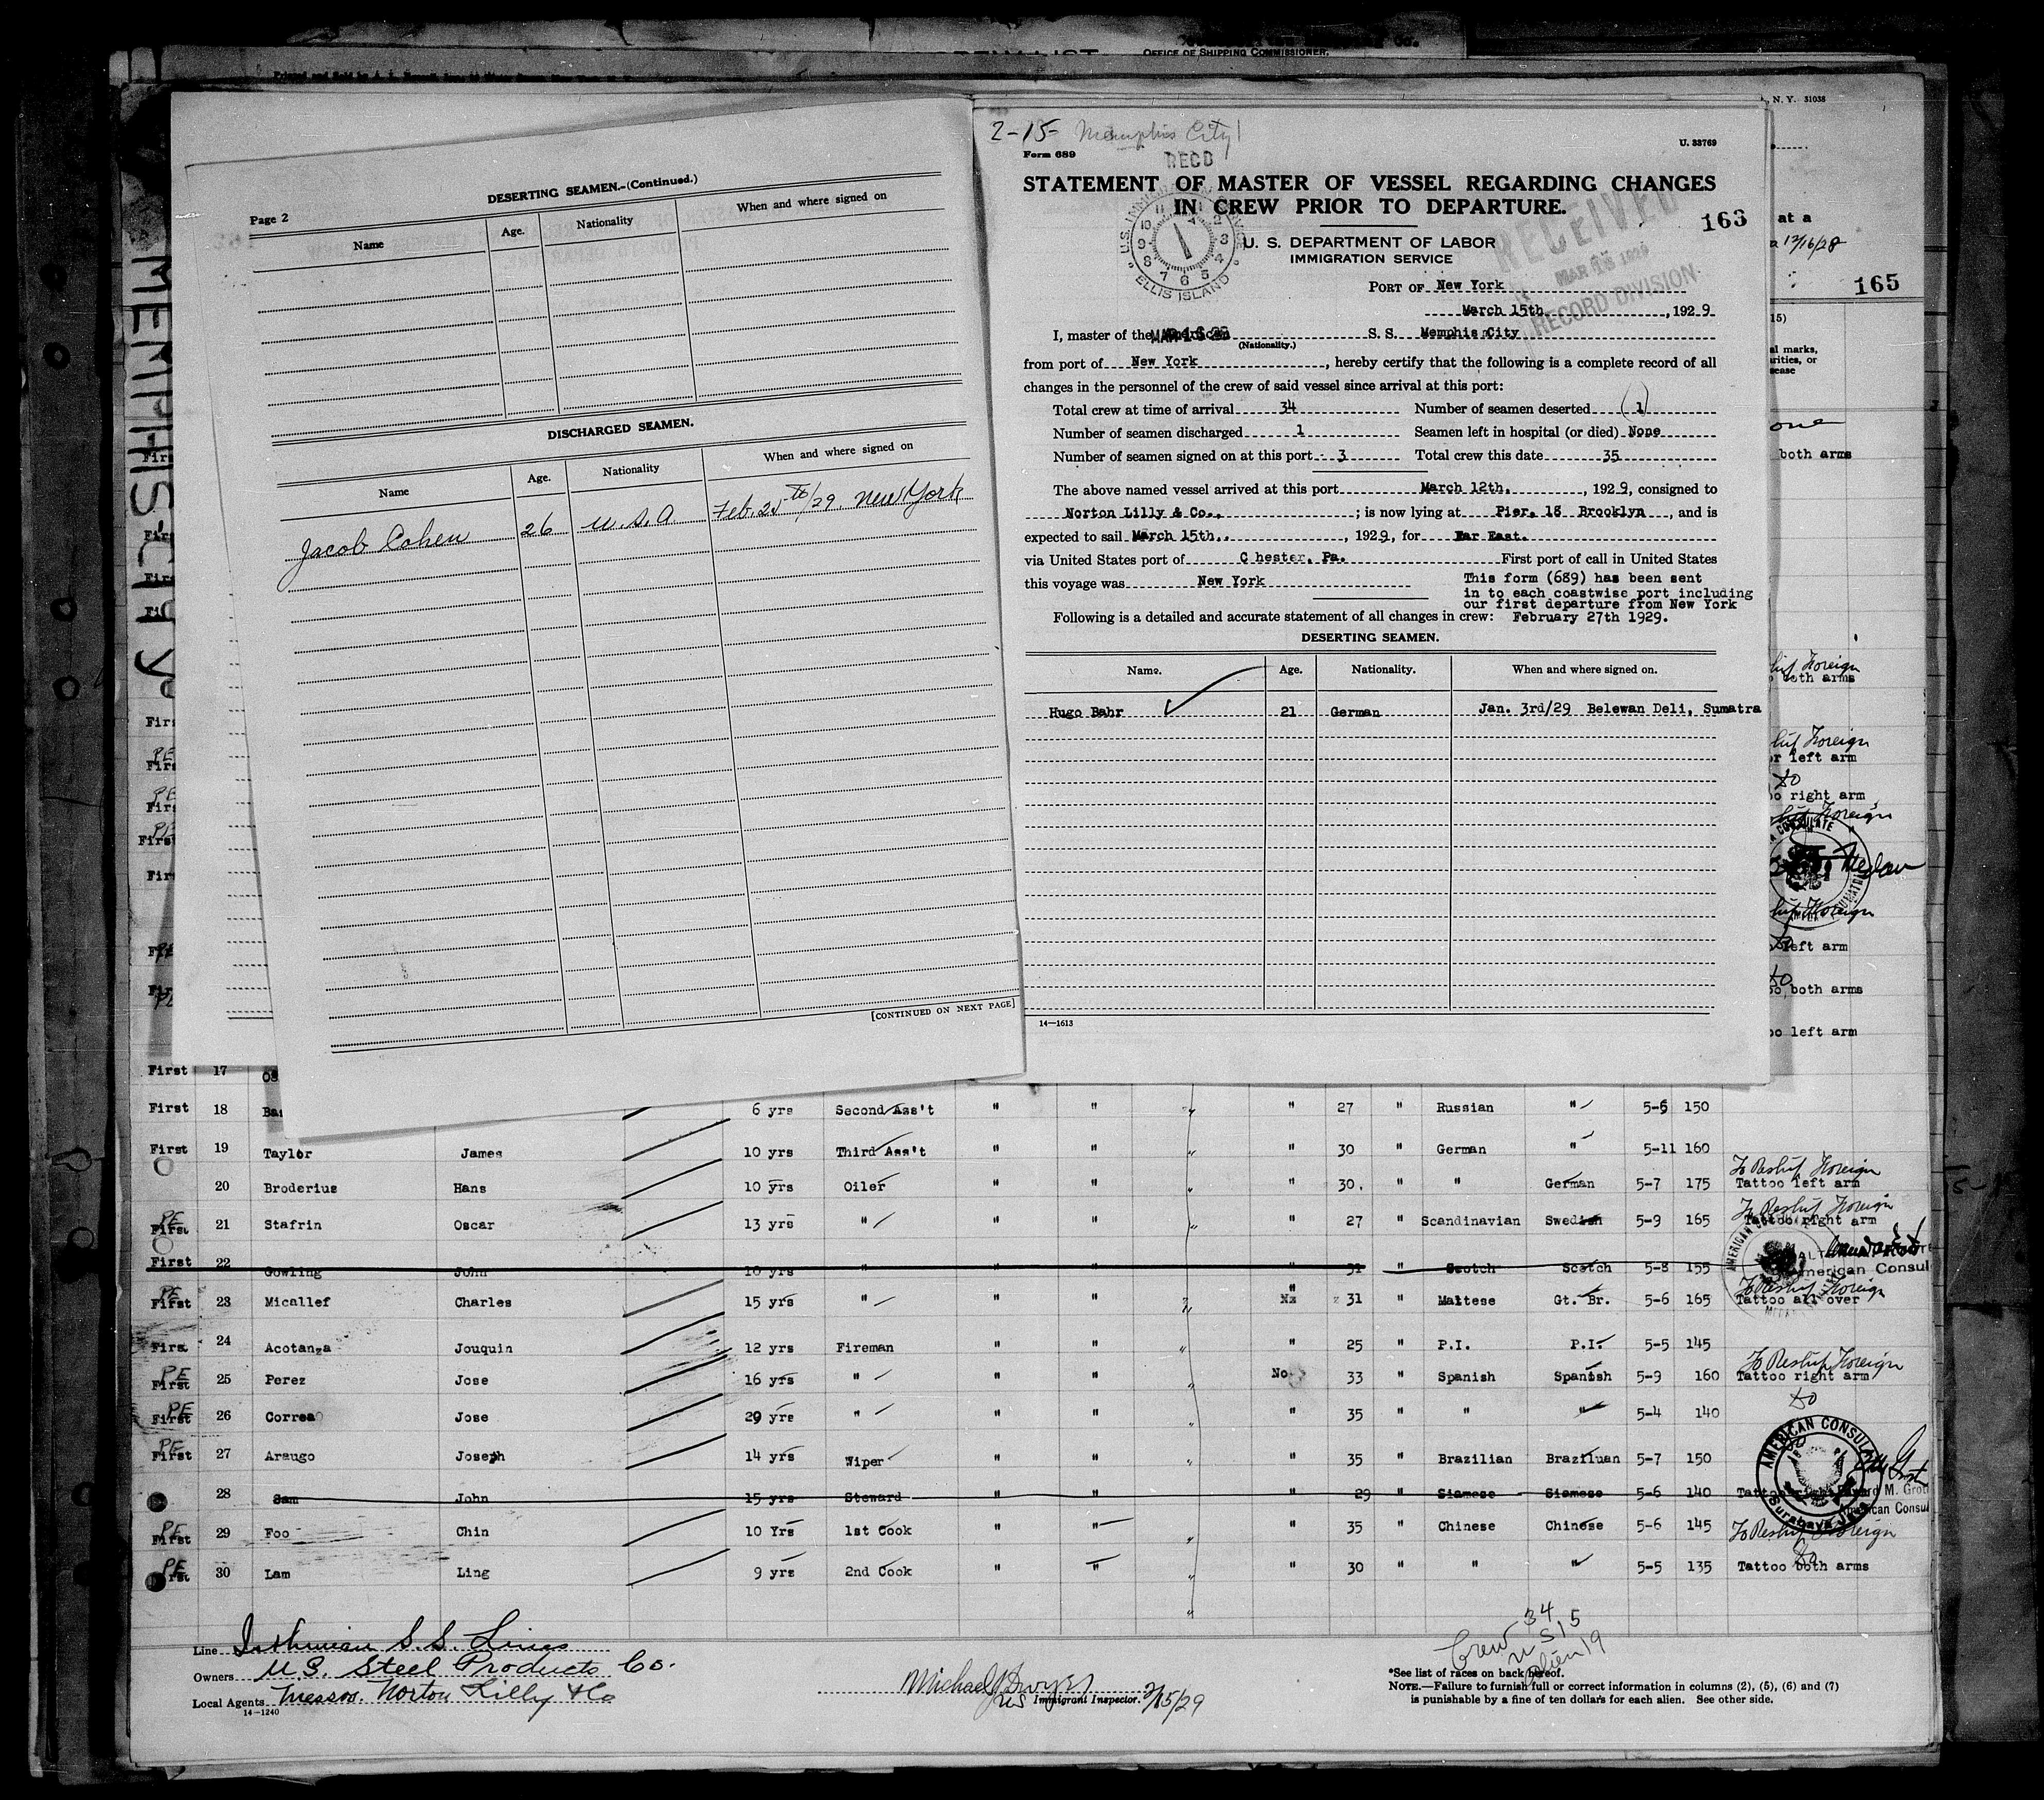 OFFICE OF SHIPPING COMMISSIONER.
N. Y. 31038
MEMPHIS CITY
Page 2
DESERTING SEAMEN.-(Continued.)
Name Age. Nationality When and where signed on
DISCHARGED SEAMEN.
Name Age. Nationality When and where signed on
Jacob Cohen 26 U.S.A. Feb. 25th/29. New York
[CONTINUED ON NEXT PAGE]
2-15- Memphis City
Form 689
U. 33769
RECD
STATEMENT OF MASTER OF VESSEL REGARDING CHANGES
IN CREW PRIOR TO DEPARTURE.
163
U. S. DEPARTMENT OF LABOR
IMMIGRATION SERVICE
ELLIS ISLAND
RECEIVED
RECORD DIVISION
PORT OF New York
March 15th , 1929
I, master of the American S. S. Memphis City
(Nationality.)
from port of New York , hereby certify that the following is a complete record of all
changes in the personnel of the crew of said vessel since arrival at this port:
Total crew at time of arrival 34 Number of seamen deserted (1)
Number of seamen discharged 1 Seamen left in hospital (or died) None
Number of seamen signed on at this port 3 Total crew this date 35
The above named vessel arrived at this port March 12th. , 1929, consigned to
Norton Lilly & Co., ; is now lying at Pier. 18 Brooklyn , and is
expected to sail March 15th.. , 1929, for Far East.
via United States port of Chester, Pa. First port of call in United States
this voyage was New York
This form (689) has been sent
in to each coastwise port including
our first departure from New York
Following is a detailed and accurate statement of all changes in crew: February 27th 1929.
DESERTING SEAMEN.
Name. Age. Nationality. When and where signed on.
Hugo Bahr 21 German Jan. 3rd/29 Belewan Deli, Sumatra
14-1613
at a
12/16/28
165
both arms
Foreign
both arms
Foreign
left arm
do
right arm
Foreign
Medan
Foreign
left arm
do
both arms
left arm
First 17
First 18 6 yrs Second Ass't " " " " 27 " Russian " 5-6 150
First 19 Taylor James 10 yrs Third Ass't " " " " 30 " German " 5-11 160
To Reship Foreign
20 Broderius Hans 10 yrs Oiler " " " " 30. " " German 5-7 175 Tattoo left arm
PE To Reship Foreign
First 21 Stafrin Oscar 13 yrs " " " " " 27 " Scandinavian Swedish 5-9 165 Tattoo right arm
First 22 Gowling John 10 yrs " 31 " Scotch Scotch 5-8 155
American Consul
PE To Reship Foreign
First 23 Micallef Charles 15 yrs " " " " 31 " Maltese Gt. Br. 5-6 165 Tattoo all over
First 24 Acotanza Jouquin 12 yrs Fireman " " " " 25 " P.I. P.I. 5-5 145
PE To Reship Foreign
First 25 Perez Jose 16 yrs " " " " No 33 " Spanish Spanish 5-9 160 Tattoo right arm
PE do
First 26 Correa Jose 29 yrs " " " " " 35 " " " 5-4 140
PE do
First 27 Araugo Joseph 14 yrs Wiper " " " " 35 " Brazilian Braziluan 5-7 150
AMERICAN CONSULA
Surabaya Java
28 Sam John 15 yrs Steward " " " 29 " Siamese Siamese 5-6 140
American Consul
PE To Reship Foreign
First 29 Foo Chin 10 Yrs 1st Cook " " " " 35 " Chinese Chinese 5-6 145
PE do
First 30 Lam Ling 9 yrs 2nd Cook " " " " 30 " " " 5-5 135 Tattoo both arms
Crew 34
US 15
Alien 19
Line Isthmian S.S. Lines
Owners U.S. Steel Products Co.
Local Agents Messrs. Norton Lilly & Co
14-1240
Michael J Dwyer
US Immigrant Inspector. 3/15/29
*See list of races on back hereof.
NOTE.—Failure to furnish full or correct information in columns (2), (5), (6) and (7)
is punishable by a fine of ten dollars for each alien. See other side.